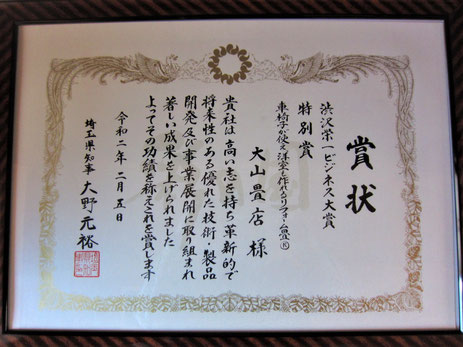 賞状
渋沢栄一ビジネス大賞
特別賞
車椅子が使え洋室も作れるリフォーム畳®
大山畳店 様
貴社は高い志を持ち革新的で
将来性のある優れた技術・製品
開発及び事業展開に取り組まれ
著しい成果を上げられました
よってその功績を称えこれを賞します
令和二年二月五日
埼玉県知事 大野元裕